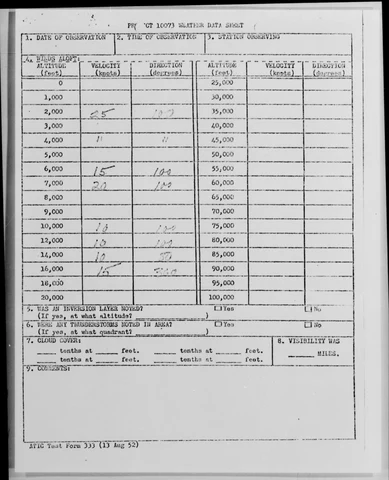 10073 WEATHER DATA SHEET
1. DATE OF OBSERVATION 2. TIME OF OBSERVATION 3. STATION OBSERVING
4. WINDS ALOFT:
ALTITUDE VELOCITY DIRECTION ALTITUDE VELOCITY DIRECTION
(feet) (knots) (degrees) (feet) (knots) (degrees)
0 25,000
1,000 30,000
2,000 25 35,000
3,000 40,000
4,000 " " 45,000
5,000 50,000
6,000 15 100 55,000
7,000 20 100 60,000
8,000 65,000
9,000 70,000
10,000 10 100 75,000
12,000 10 100 80,000
14,000 10 85,000
16,000 15 90,000
18,000 95,000
20,000 100,000
5. WAS AN INVERSION LAYER NOTED? Yes No
(If yes, at what altitude? )
6. WERE ANY THUNDERSTORMS NOTED IN AREA? Yes No
(If yes, at what quadrant? )
7. CLOUD COVER: 8. VISIBILITY WAS
tenths at feet. tenths at feet. MILES.
tenths at feet. tenths at feet.
9. COMMENTS:
ATIC Test Form 333 (13 Aug 52)